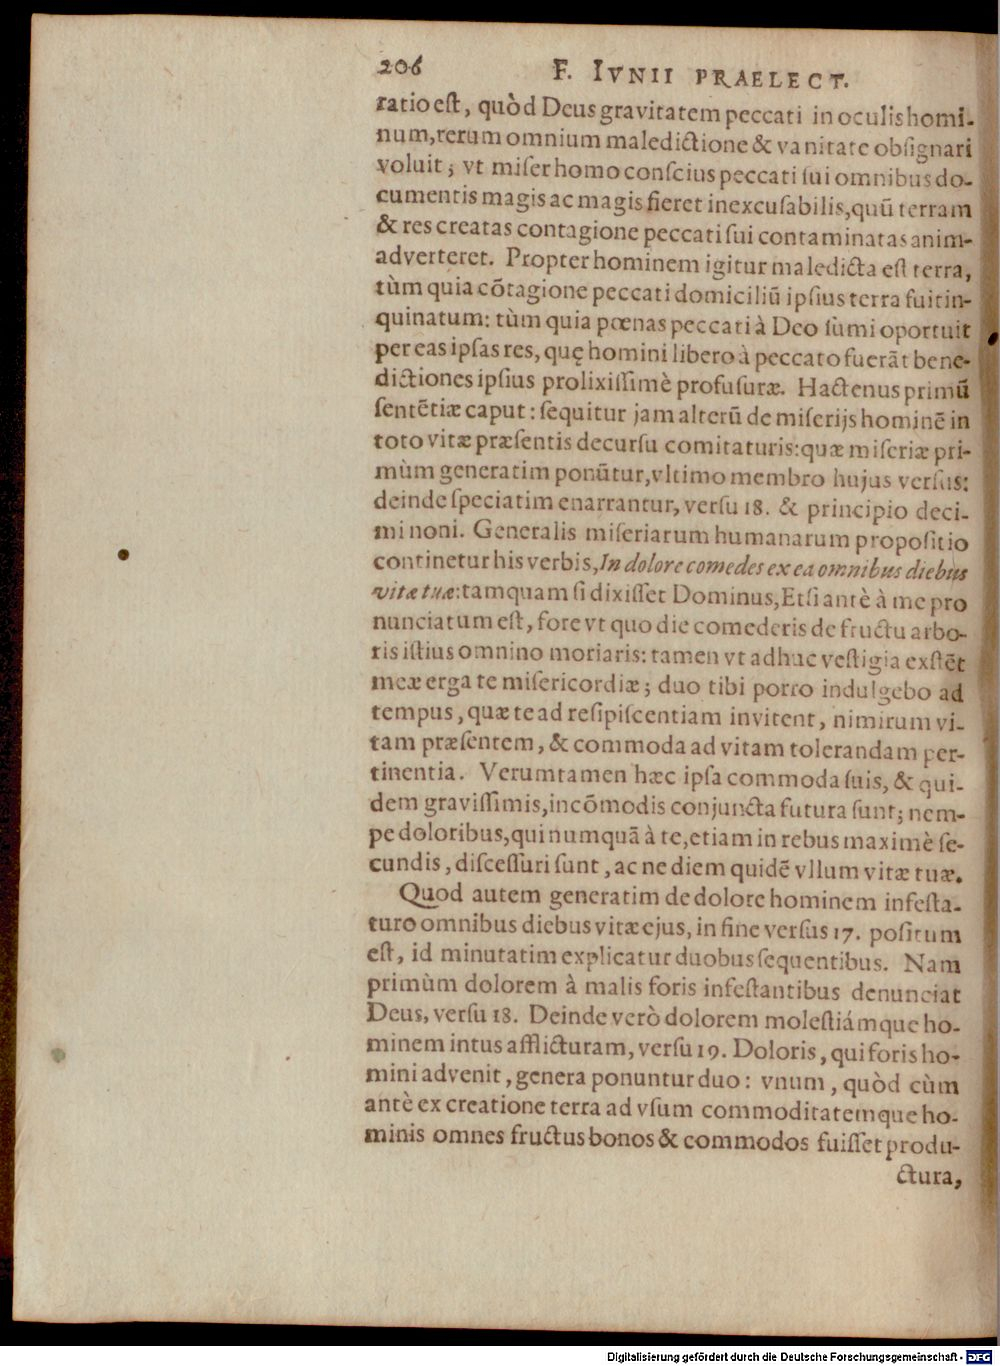 206 F. IVNII PRAELECT.
ratio eſt, quòd Deus gravitatem peccati in oculis homi-
num, rerum omnium maledictione & vanitate obſignari
voluit; vt miſer homo conſcius peccati ſui omnibus do-
cumentis magis ac magis fieret inexcuſabilis, quū terram
& res creatas contagione peccati ſui contaminatas anim-
adverteret. Propter hominem igitur maledicta eſt terra,
tùm quia cōtagione peccati domiciliū ipſius terra fuit in-
quinatum: tùm quia pœnas peccati à Deo ſùmi oportuit
per eas ipſas res, quę homini libero à peccato fuerāt bene-
dictiones ipſius prolixiſſimè profuſuræ. Hactenus primū
ſentētiæ caput: ſequitur jam alterū de miſerijs hominē in
toto vitæ præſentis decurſu comitaturis: quæ miſeriæ pri-
mùm generatim ponūtur, vltimo membro hujus verſus:
deinde ſpeciatim enarrantur, verſu 18. & principio deci-
mi noni. Generalis miſeriarum humanarum propoſitio
continetur his verbis, In dolore comedes ex ea omnibus diebus
vitæ tuæ: tamquam ſi dixiſſet Dominus, Etſi antè à me pro
nunciatum eſt, fore vt quo die comederis de fructu arbo-
ris iſtius omnino moriaris: tamen vt adhuc veſtigia exſtēt
meæ erga te miſericordiæ; duo tibi porro indulgebo ad
tempus, quæ te ad reſipiſcentiam invitent, nimirum vi-
tam præſentem, & commoda ad vitam tolerandam per-
tinentia. Verumtamen hæc ipſa commoda ſuis, & qui-
dem graviſſimis, incōmodis conjuncta futura ſunt; nem-
pe doloribus, qui numquā à te, etiam in rebus maximè ſe-
cundis, diſceſſuri ſunt, ac ne diem quidē vllum vitæ tuæ.
Quod autem generatim de dolore hominem infeſta-
turo omnibus diebus vitæ ejus, in fine verſus 17. poſitum
eſt, id minutatim explicatur duobus ſequentibus. Nam
primùm dolorem à malis foris infeſtantibus denunciat
Deus, verſu 18. Deinde verò dolorem moleſtiámque ho-
minem intus afflicturam, verſu 19. Doloris, qui foris ho-
mini advenit, genera ponuntur duo: vnum, quòd cùm
antè ex creatione terra ad vſum commoditatemque ho-
minis omnes fructus bonos & commodos fuiſſet produ-
ctura,
Digitalisierung gefördert durch die Deutsche Forschungsgemeinschaft - DFG